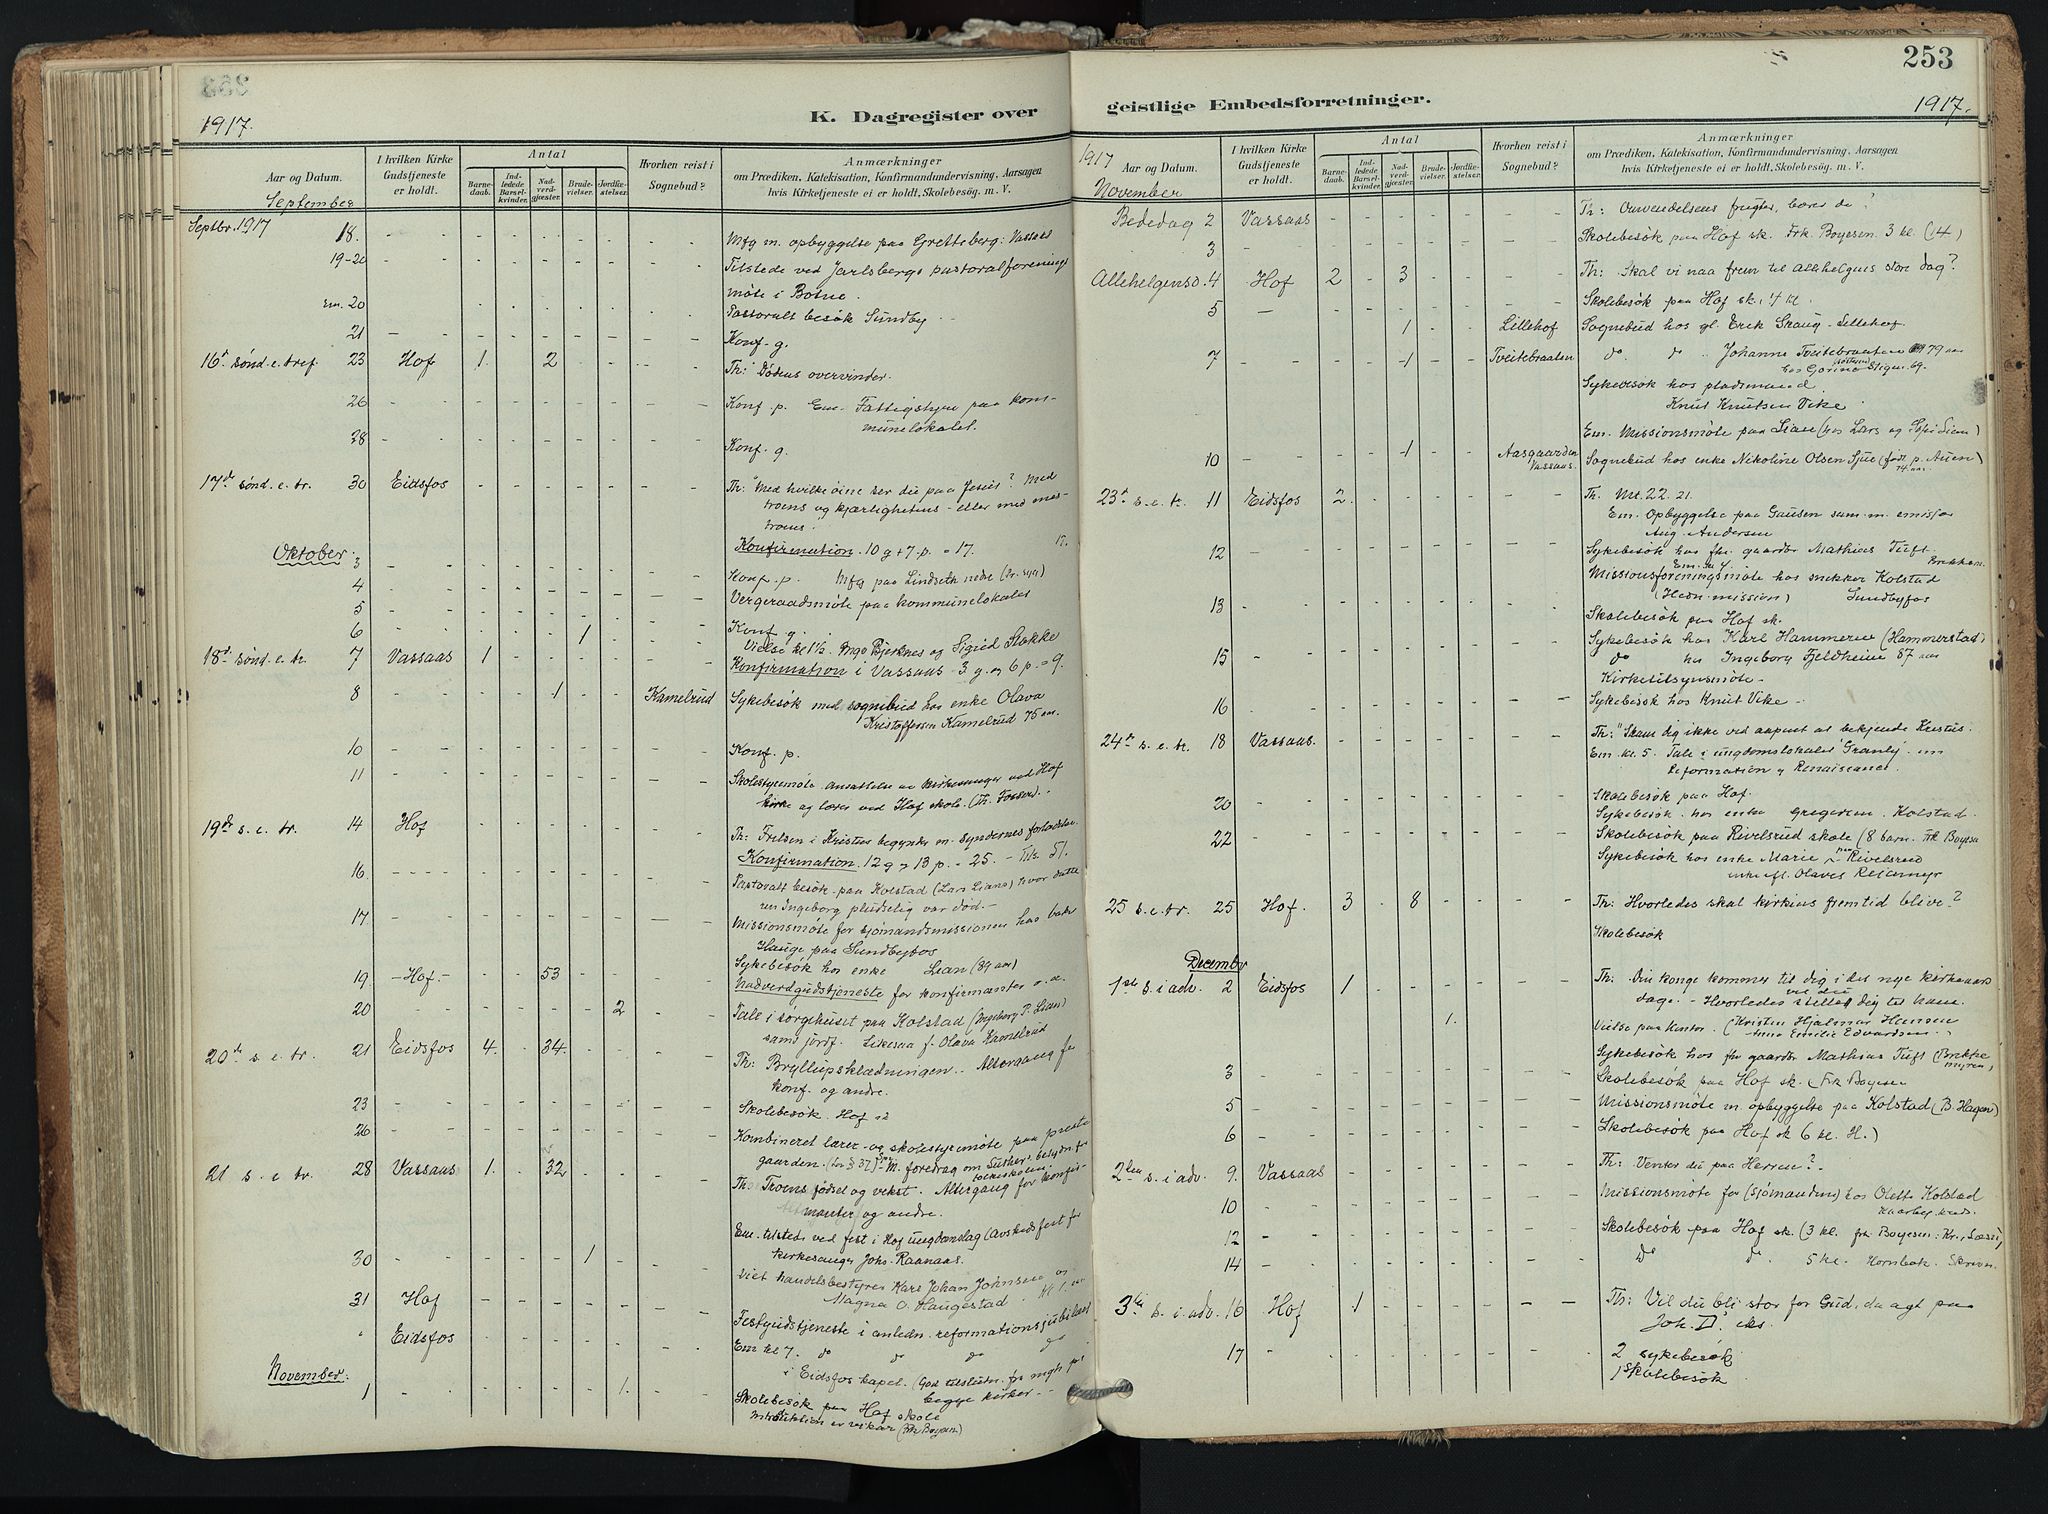 1917.
K. Dagregister over
Aar og Datum.
September
I hvilken Kirke Gudstjeneste er holdt.
Antal
Barnedaab.
Indledede Barselkvinder.
Nadverdgjester.
Brudevielser.
Jordfæstelser.
Hvorhen reist i Sognebud?
Anmærkninger
om Prædiken, Katekisation, Konfirmandundervisning, Aarsagen
hvis Kirketjeneste ei er holdt, Skolebesög. m. V.
Septbr. 1917 18. Mfg m. opbyggelse paa Gretteberg: Vassaas
19-20 Tilstede ved Jarlsbergs pastoralforenings
møte i Botne.
em. 20 Pastoralt besøk Sundby
21 Konf. g.
16d sønd. e. tref. 23 Hof 1. 2 Th: Dødens overvinder.
26 Konf. p. Em. Fattigstyre paa kom-
munelokalet.
28 Konf. g.
17de sønd. e. tr. 30 Eidsfos Th: "Med hvilke øine ser du paa Jesus? Med
troens og kjærlighetens - eller med
troens.
Konfirmation. 10 g + 7 p. = 17.
Oktober.
3 Konf. p. Mfg paa Lindseth nedre
4 Vergeraadsmøte paa kommunelokalet
5 Konf. g.
6 1 Vielse kl 1½. Inga og Sigrid Stokke
18d. sønd. e. tr. 7 Vassaas 1 Konfirmation i Vassaas - 3 g. og 6 p. = 9.
8 1 Kamelrud Sykebesøk med sognebud hos enke Olava
Kristoffersen Kamelrud 75 aar.
10 Konf. p.
11 Skolestyremøte. Ansættelse av kirkesanger ved Hof
kirke og lærer ved Hof skole.
19de s. e. tr. 14 Hof Th: Frelsen i Kristus begynder m. syndernes forladelse.
Konfirmation. 12 g + 13 p. = 25. - Tils. 51.
16. Pastoralt besøk paa Kolstad (Lars Lians) hvor datte
ren Ingeborg pludselig var død. -
17 Missionsmøte for sjømandsmissionen hos
Hauge paa Sundbyfos
Sykebesøk hos enke Lian (84 aar)
19 - Hof - 53 Nadverdgudstjeneste for konfirmanter o. a.
20 2 Tale i sørgehuset paa Kolstad (Ingeborg P. Lian)
samt jordf. Likesaa f. Olava Kamelrud
20de s. e. tr. 21 Eidsfos 4. 34. Th: Bryllupsklædningen. Altergang for
konf. og andre.
23 Skolebesøk. Hof
26 Kombineret lærer- og skolestyremøte paa preste
gaarden. M. foredrag om Luther
21 s. e. tr. 28 Vassaas 1. 32 Th: Troens fødsel og vekst. Altergang for konfir-
manter og andre.
Em. tilstede ved fest i Hof ungdomslag (Avskedsfest for
kirkesanger Johs. Raanaas.
30 1 Viet handelsbestyrer Karl Johan Johnsen og
Magna O. Haugestad
31 Hof Festgudstjeneste i anledn. reformationsjubilæet
" Eidsfos Em kl 7. do do do do
i Eidsfos kapel. (God tilslutn. fra menigh. paa
begge kirker. -
November.
1 1. Skolebesøk paa Hof skole
(Frk Boyesen)
geistlige Embedsforretninger.
253
1917.
1917
Aar og Datum.
November
I hvilken Kirke Gudstjeneste er holdt.
Antal
Barnedaab.
Indledede Barselkvinder.
Nadverdgjester.
Brudevielser.
Jordfæstelser.
Hvorhen reist i Sognebud?
Anmærkninger
om Prædiken, Katekisation, Konfirmandundervisning, Aarsagen
hvis Kirketjeneste ei er holdt, Skolebesög. m. V.
Bededag 2 Vassaas Th: Omvendelsens frugter, bærer de?
3 Skolebesøk paa Hof sk. Frk. Boyesen. 3 kl. (14)
Allehelgensd. 4 Hof 2 3 Th: Skal vi naa frem til Allehelgens store dag?
5 Skolebesøk paa Hof sk. 4 kl.
1 Lillehof Sognebud hos gl. Erik Graug - Lillehof.
7 1 Tveitebraaten do do Johanne Tveitebraaten 79 aar
Sykebesøk hos pladsmand
Knut Knutsen Vike
Em. Missionsmøte paa Lian (hos Lars og Lian)
10 1 Aasgaarden Vassaas. Sognebud hos enke Nikoline Olsen Sjue (født p. Auen)
74 aar.
23d s. e. tr. 11 Eidsfos 2. Th. Mt. 22. 21.
Em. Opbyggelse paa Gausen sam. m. emissær
Aug. Andersen
12 Sykebesøk hos fhv. gaardbr Mathias Tuft
Missionsforeningsmøte hos snekker Kolstad
(Hedn. mission) Sundbyfos
13 Skolebesøk paa Hof sk.
Sykebesøk hos Karl Hammeren (Hammerstad)
15 do hos Ingeborg Fjeldheim 87 aar
Kirketilsynsmøte -
16 Sykebesøk hos Knut Vike -
24de s. e. tr. 18 Vassaas. Th: "Skam dig ikke ved aapent at bekjende Kristus.
Em kl. 5. Tale i ungdomslokalet "Granly" om
Reformation og Renaissance.
20 Skolebesøk paa Hof.
Sykebesøk hos enke Gregersen Kolstad.
22 Skolebesøk paa Rivelsrud skole (8 barn. Frk Boyesen
Sykebesøk hos enke Marie Rivelsrud
25 s. e. tr. 25 Hof. 3 8 Th: Hvorledes skal kirkens fremtid blive?
Skolebesøk
December
1ste s. i adv. 2 Eidsfos 1 Th: Din konge kommer til dig i det nye kirkeaars
dage. - Hvorledes vil du stille dig til ham.
1. Vielse paa kontor. (Kristen Hjalmar Hansen
Anna Emilie Edvardsen.
Sykebesøk hos fhv gaardbr Mathias Tuft (Brekke
myren)
3 Skolebesøk paa Hof sk. (Frk Boyesen
5 Missionsmøte m. opbyggelse paa Kolstad (B. Hagen)
6 Skolebesøk paa Hof sk 6 kl. H.)
2den s. i adv. 9. Vassaas Th: Venter du paa Herren? -
10 Missionsmøte for (sjømandsm) hos Olette Kolstad
12 Skolebesøk paa Hof sk. (3 kl. frk Boyesen: Kr., Læsn)
14 do do 5 kl. Hornbæk. Skrivn.
3die s. i adv. 16 Hof 1 Th: Vil du bli stor for Gud, da agt paa
Joh. D. eks.
17 2 sykebesøk
1 Skolebesøk